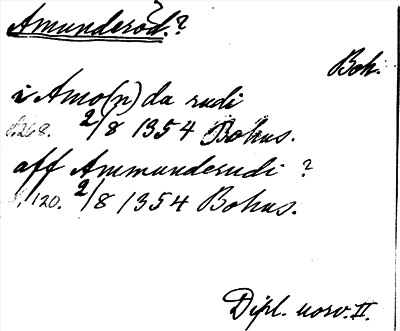 Amunderöd.?
Boh.
i Amo(n)da rudi
s. 268. 2/8 1354 Bohus.
aff Ammunderudi ?
s. 120. 2/8 1354 Bohus.
Dipl. norv. II.